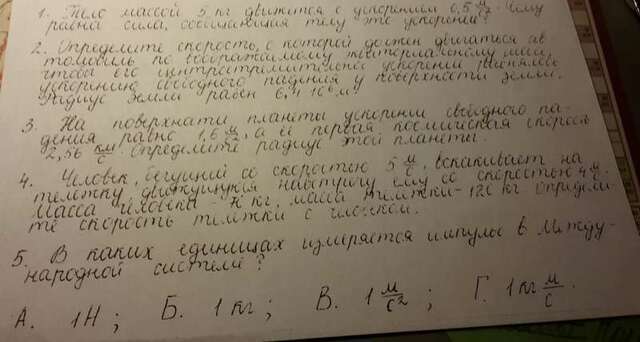 1. Тело массой 5 кг движется с ускорением 0,5 м/с². Чему
равна сила, сообщающая телу это ускорение?
2. Определите скорость, с которой должен двигаться ав-
томобиль по
чтобы его центростремительное ускорение равнялось
ускорению свободного падения у поверхности земли.
Радиус Земли равен 6,4·10⁶ м
3. На поверхности планеты ускорение свободного па-
дения равно 1,6 м/с², а её первая космическая скорость
2,56 км/с. Определите радиус этой планеты.
4. Человек, бегущий со скоростью 5 м/с, вскакивает на
тележку движущуюся навстречу ему со скоростью 4 м/с.
Масса человека - кг, масса тележки - 120 кг Определи-
те скорость тележки с человеком.
5. В каких единицах измеряется импульс в Между-
народной системе?
А. 1Н; Б. 1 кг; В. 1 м/с²; Г. 1 кг м/с.